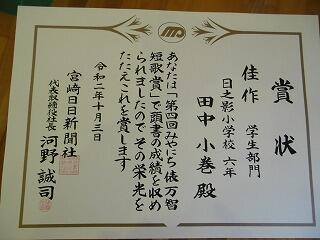 賞状
佳作 学生部門
日之影小学校 六年
田中小巻殿
あなたは「第四回みやにち俵万智
短歌賞」で頭書の成績を収め
られましたのでその栄光を
たたえこれを賞します
令和二年十月三日
宮崎日日新聞社
代表取締役社長 河野誠司